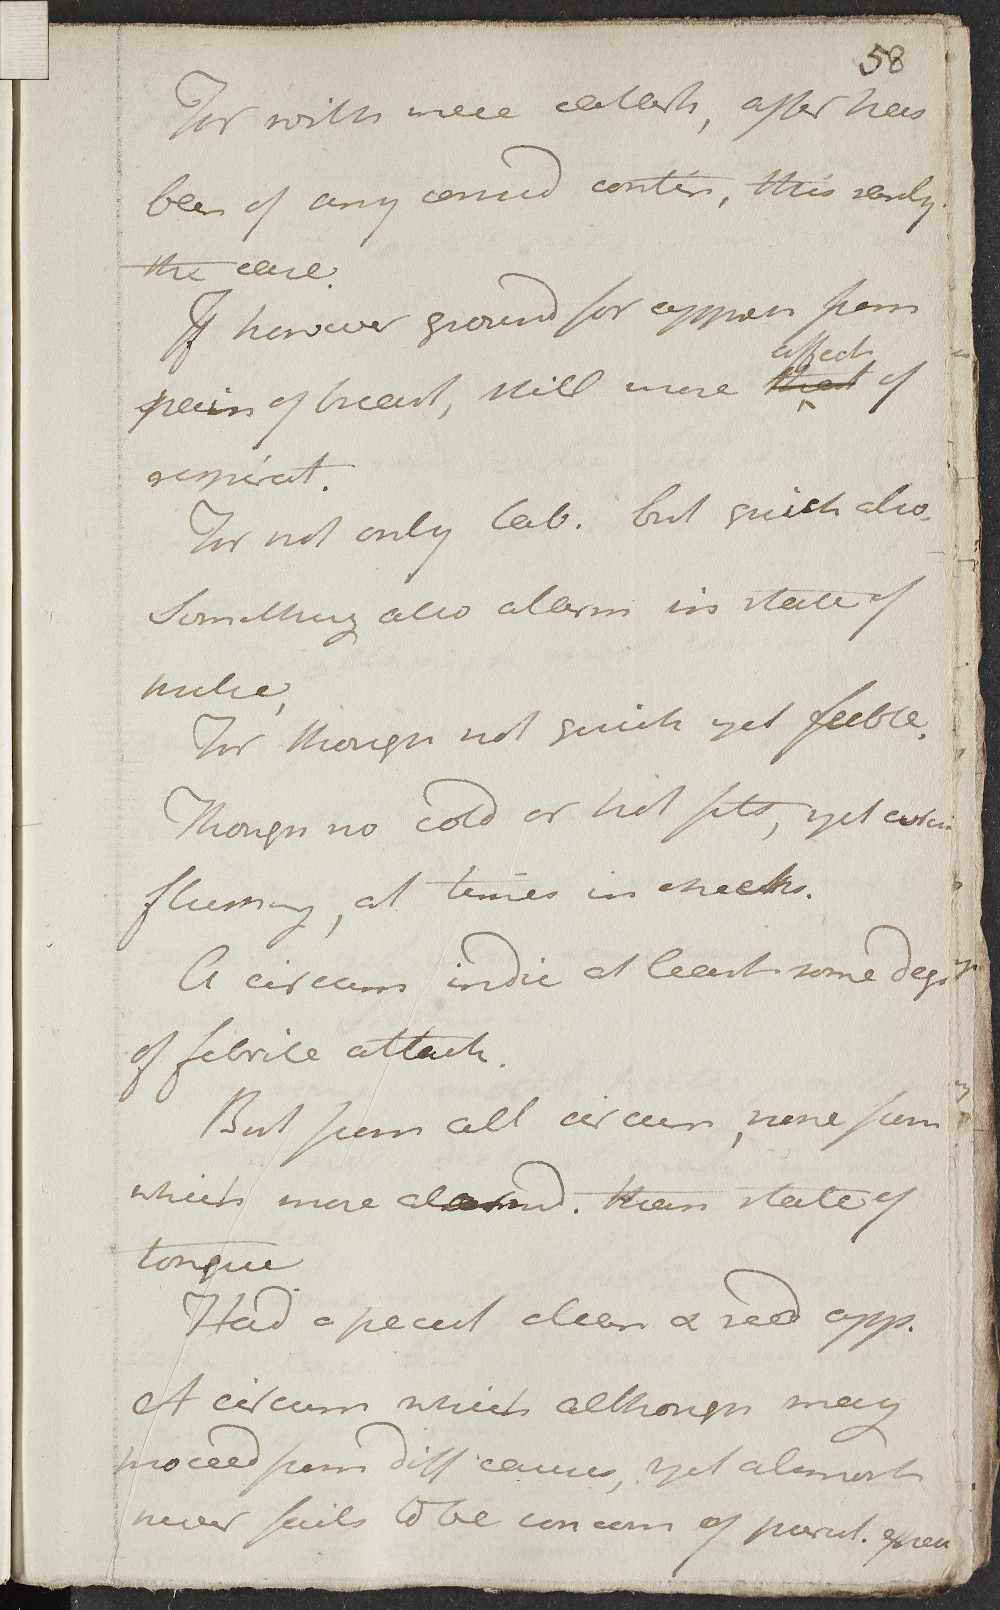 58
For with mere catarrh, after has
been of any consid contin, this rarely
the case.
If however ground for appren from
pain of breast, still more affect of
respirat.
For not only lab. but quick also.
Something also alarm in state of
pulse,
For though not quick yet feeble.
Though no cold or hot fits, yet
flushing, at times in cheeks.
A circum indic at least some deg
of febrile attack.
But from all circum, none from
which more alarmd. than state of
tongue
Had a pecul clean & red app.
A circum which although may
proceed from diff causes, yet almost
never fails to be concom of purul. expec